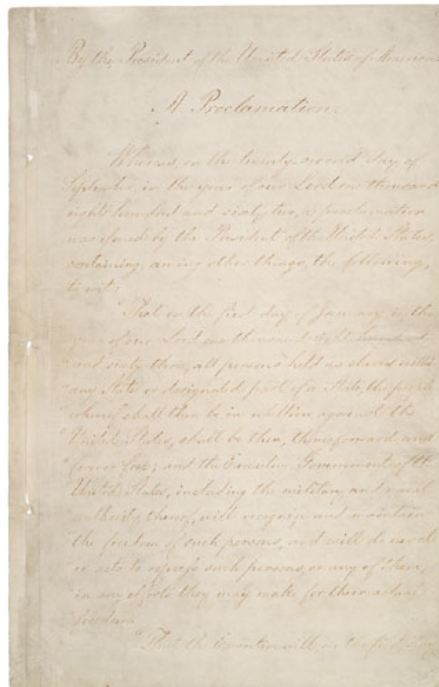 By the President of the United States of America:
A Proclamation.
Whereas, on the twenty-second day of
September, in the year of our Lord one thousand
eight hundred and sixty two, a proclamation
was issued by the President of the United States,
containing, among other things, the following,
to wit:
"That on the first day of January, in the
"year of our Lord one thousand eight hundred
"and sixty-three, all persons held as slaves within
"any State or designated part of a State, the people
"whereof shall then be in rebellion against the
"United States, shall be then, thenceforward, and
"forever free; and the Executive Government of the
"United States, including the military and naval
"authority thereof, will recognize and maintain
"the freedom of such persons, and will do no act
"or acts to repress such persons, or any of them,
"in any efforts they may make for their actual
"freedom.
"That the Executive will, on the first day